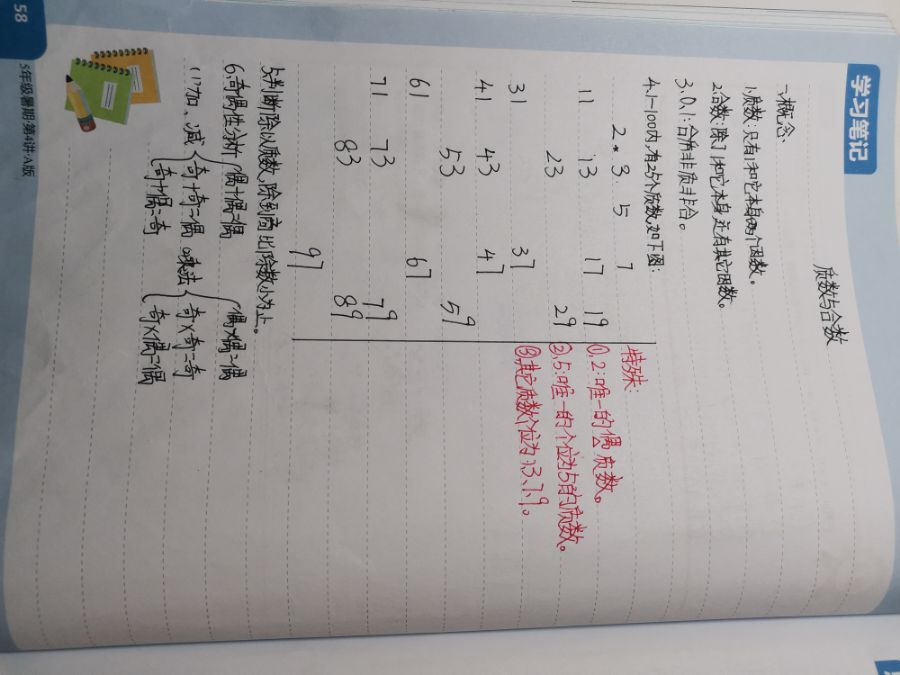 学习笔记
质数与合数
一、概念、
1.质数：只有1和它本身两个因数。
2.合数：除了1和它本身还有其它因数。
3.0、1：合角非质非合。
4.1—100内，有25个质数，如下图：
2. 3 5 7
11 13 17 19
23 29
31 37
41 43 47
53 59
61 67
71 73 79
83 89
97
特殊：
①.2：唯一的偶质数。
②.5：唯一的个位为5的质数。
③其它质数个位为1.3.7.9。
5.判断除以质数，除到商比除数小为止。
6.奇偶性分析
(1)加、减
偶+偶=偶
奇+奇=偶
奇+偶=奇
(2)乘法
偶×偶=偶
奇×奇=奇
奇×偶=偶
58
5年级暑期·第4讲·A版